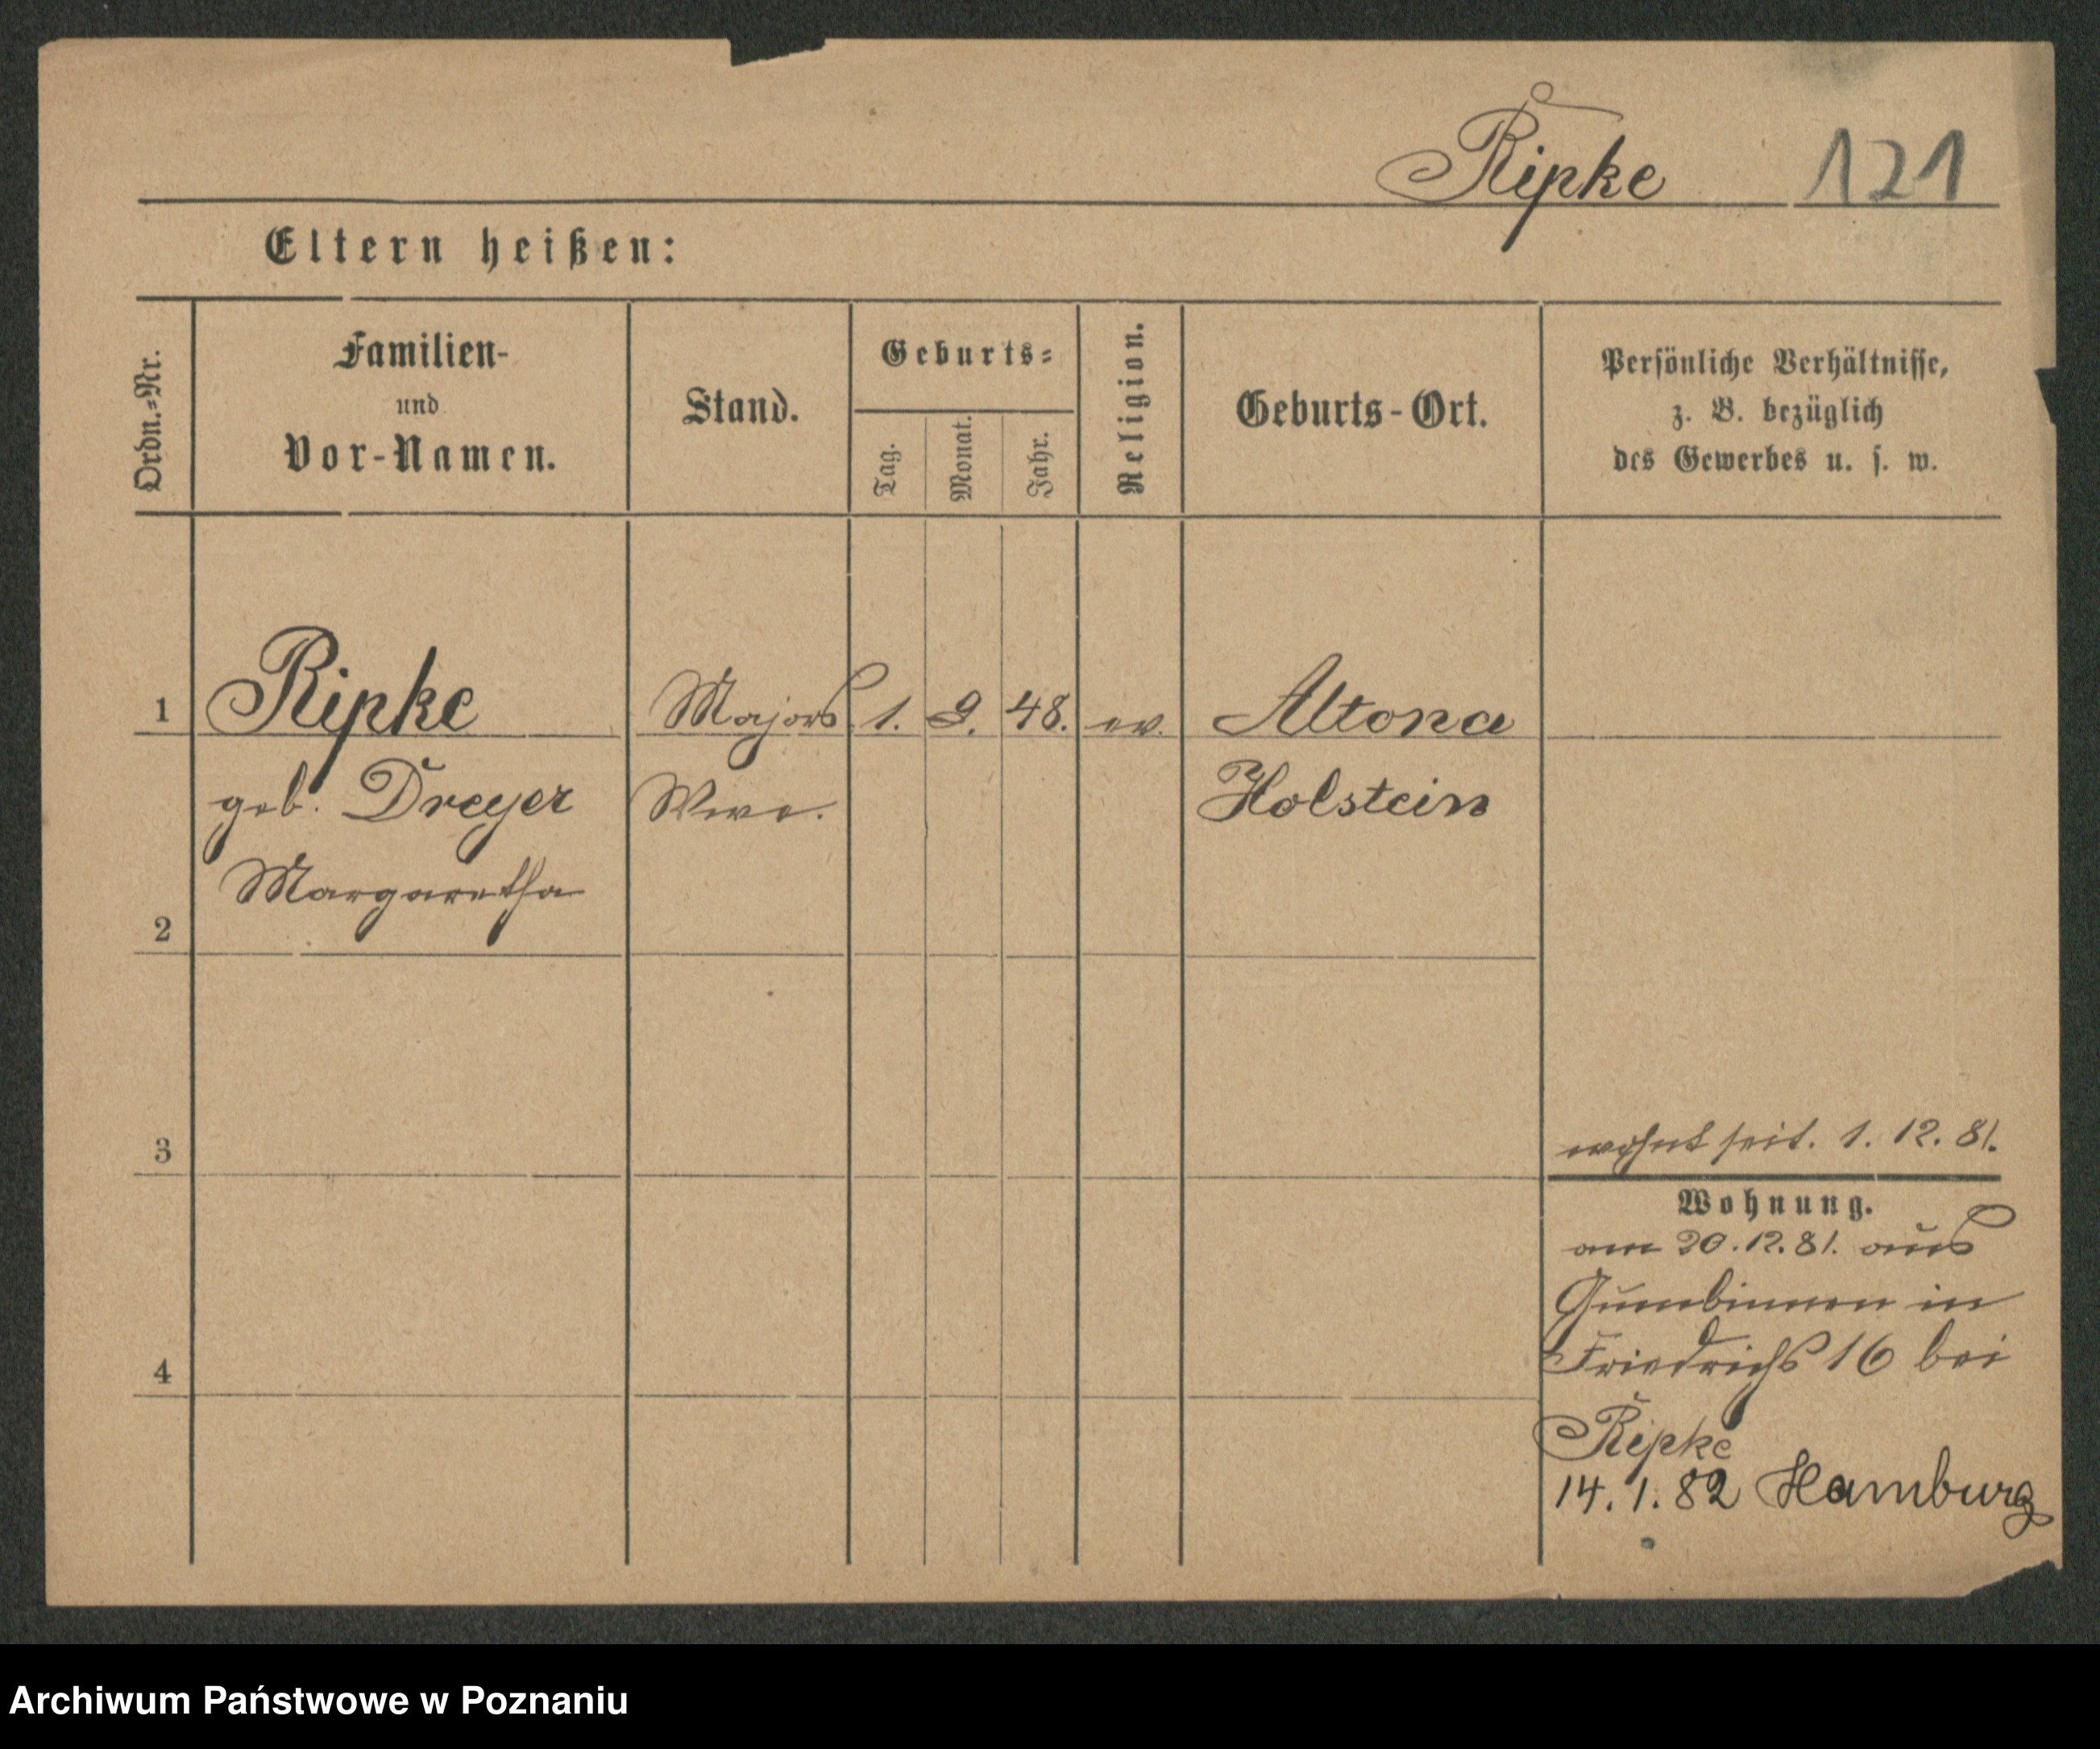 Ripke 121
Eltern heißen:
Ordn.-Nr.
Familien-
und
Vor-Namen.
Stand.
Geburts-
Tag.
Monat.
Jahr.
Religion.
Geburts-Ort.
Persönliche Verhältnisse,
z. B. bezüglich
des Gewerbes u. s. w.
1 Ripke Majors 1. 9. 48. ev. Altona
geb. Dreyer Wwe. Holstein
Margaretha
2
3
wohnt seit. 1. 12. 81.
Wohnung.
am 20. 12. 81. aus
Gumbinnen in
Friedrichs 16 bei
4
Ripke
14. 1. 82 Hamburg
Archiwum Państwowe w Poznaniu